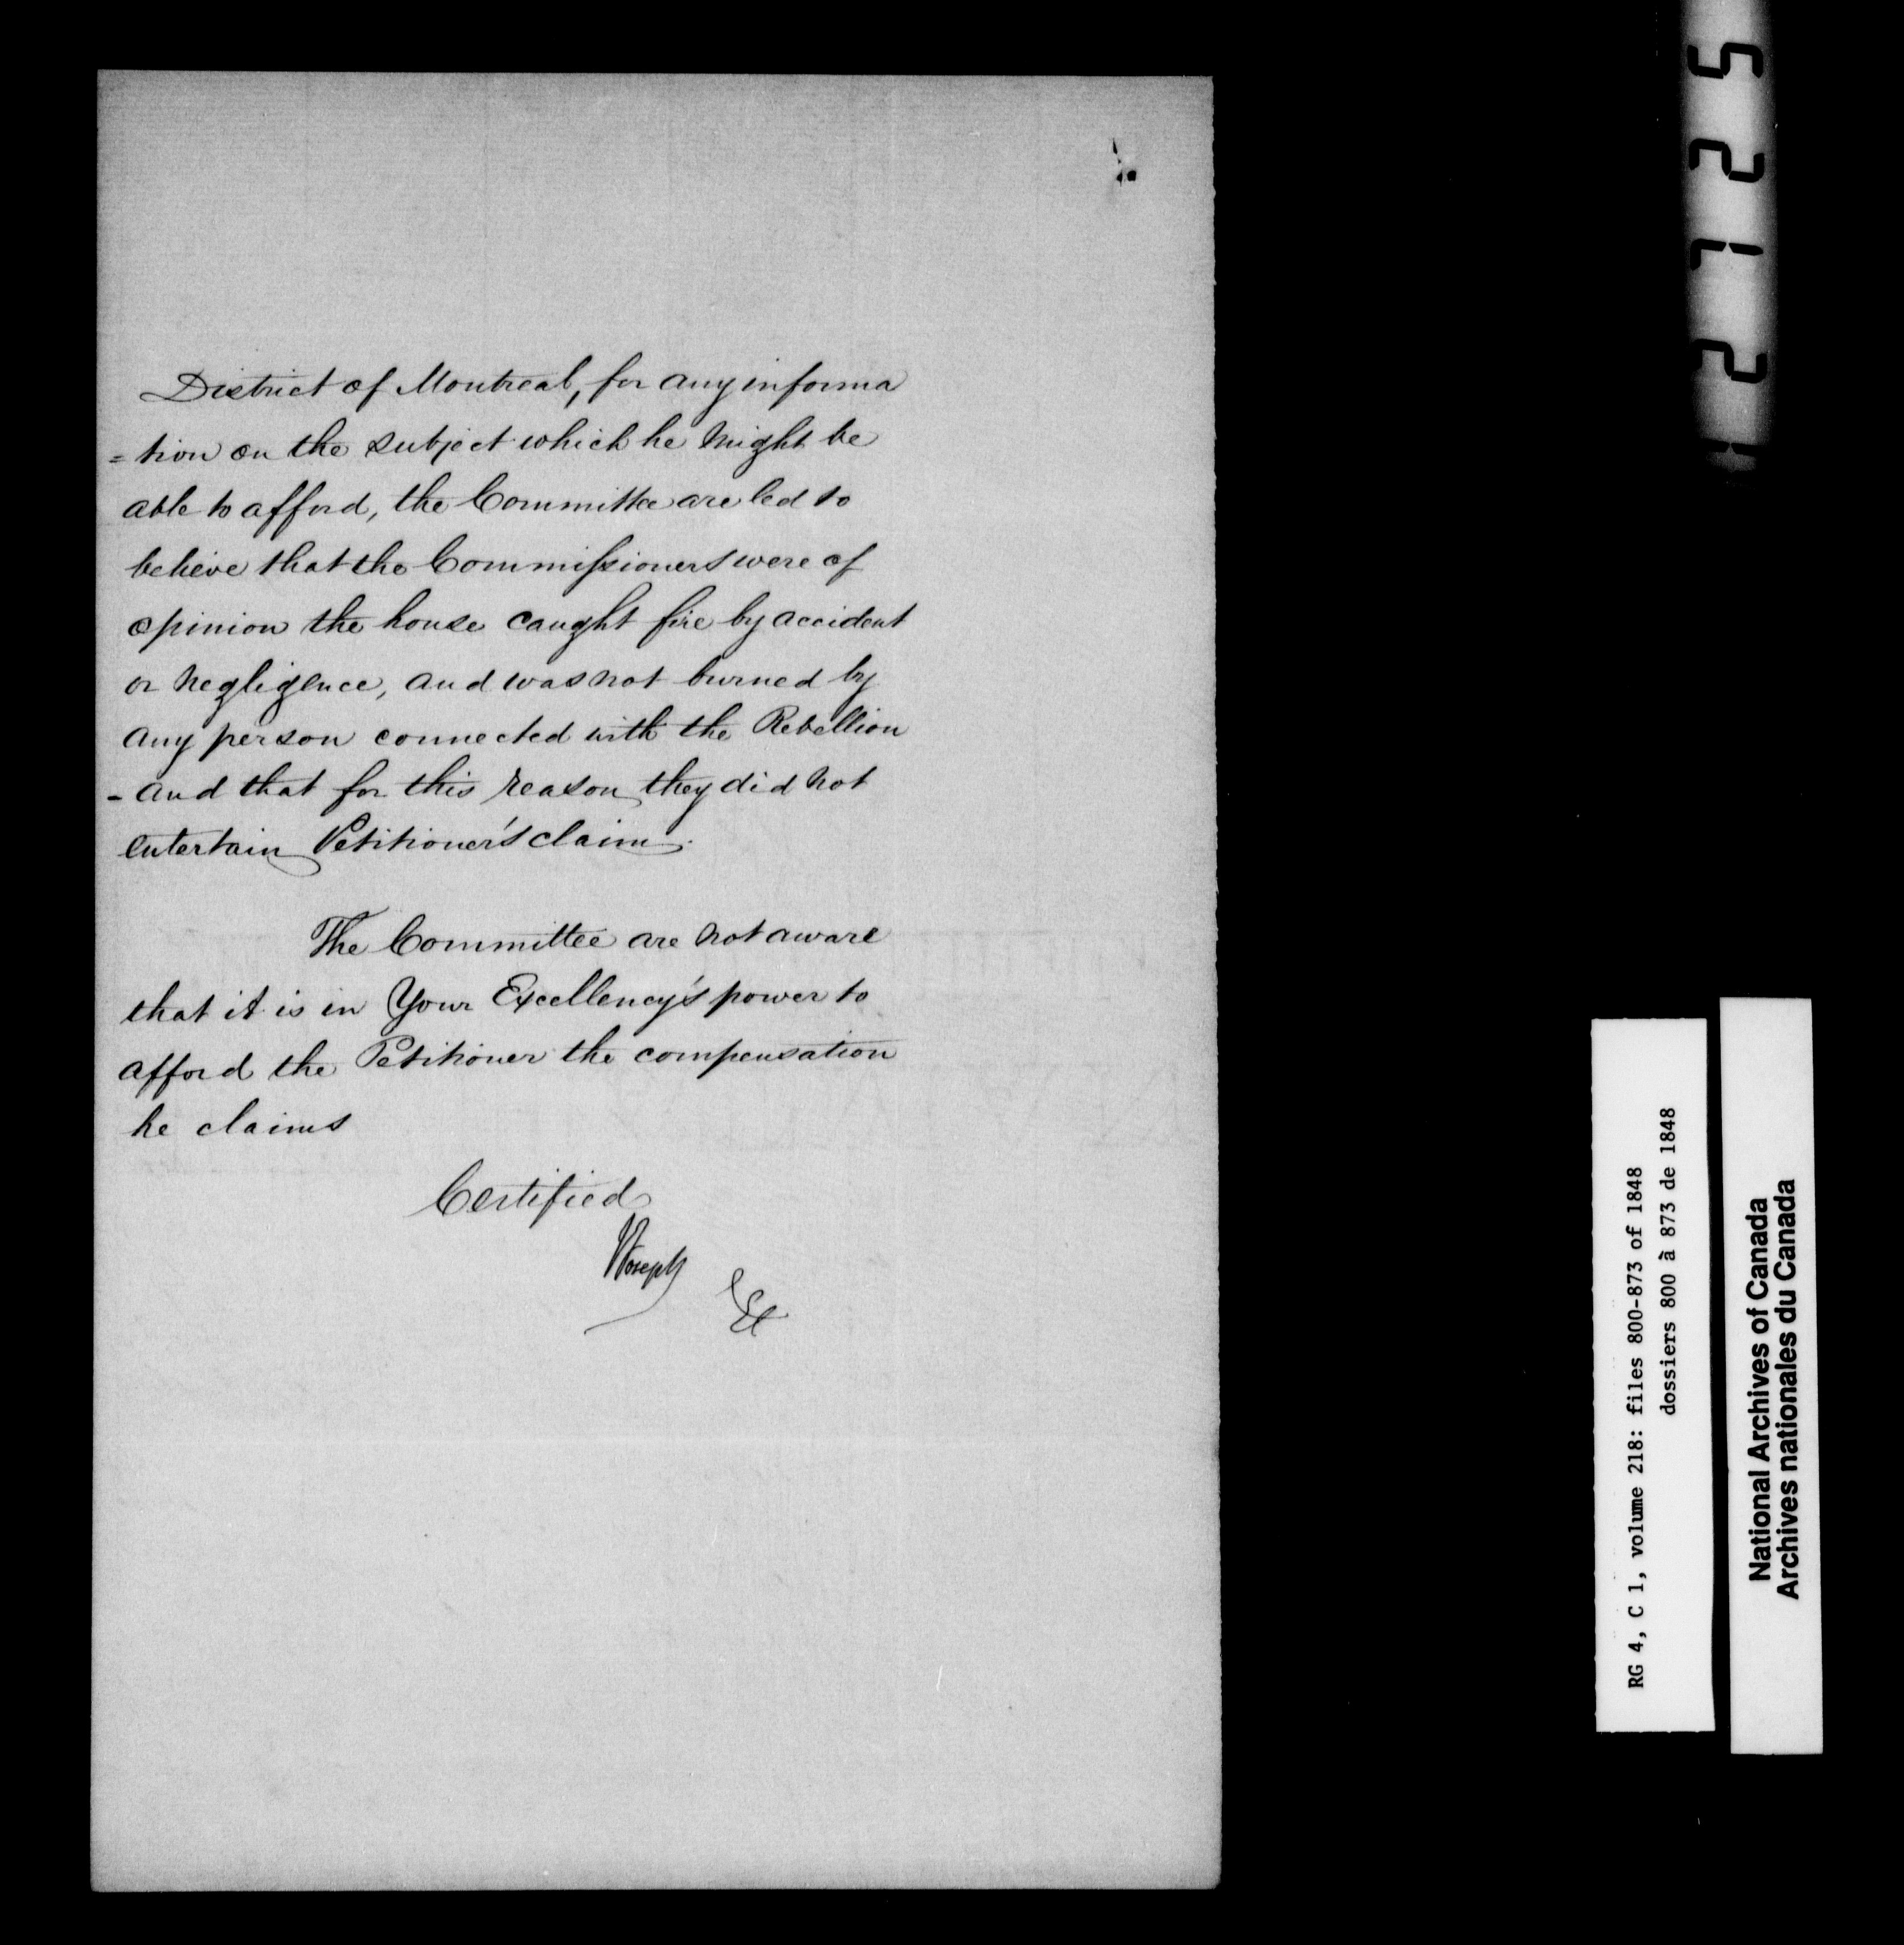 District of Montreal, for any informa
= tion on the subject which he might be
able to afford, the Committee are led to
believe that the Commissioners were of
opinion the house caught fire by accident
or negligence, and was not burned by
any person connected with the Rebellion
- and that for this reason they did not
entertain Petitioner's claim.
The Committee are not aware
that it is in Your Excellency's power to
afford the Petitioner the compensation
he claims
Certified
Joseph
RG 4, C 1, volume 218: files 800-873 of 1848
dossiers 800 à 873 de 1848
National Archives of Canada
Archives nationales du Canada